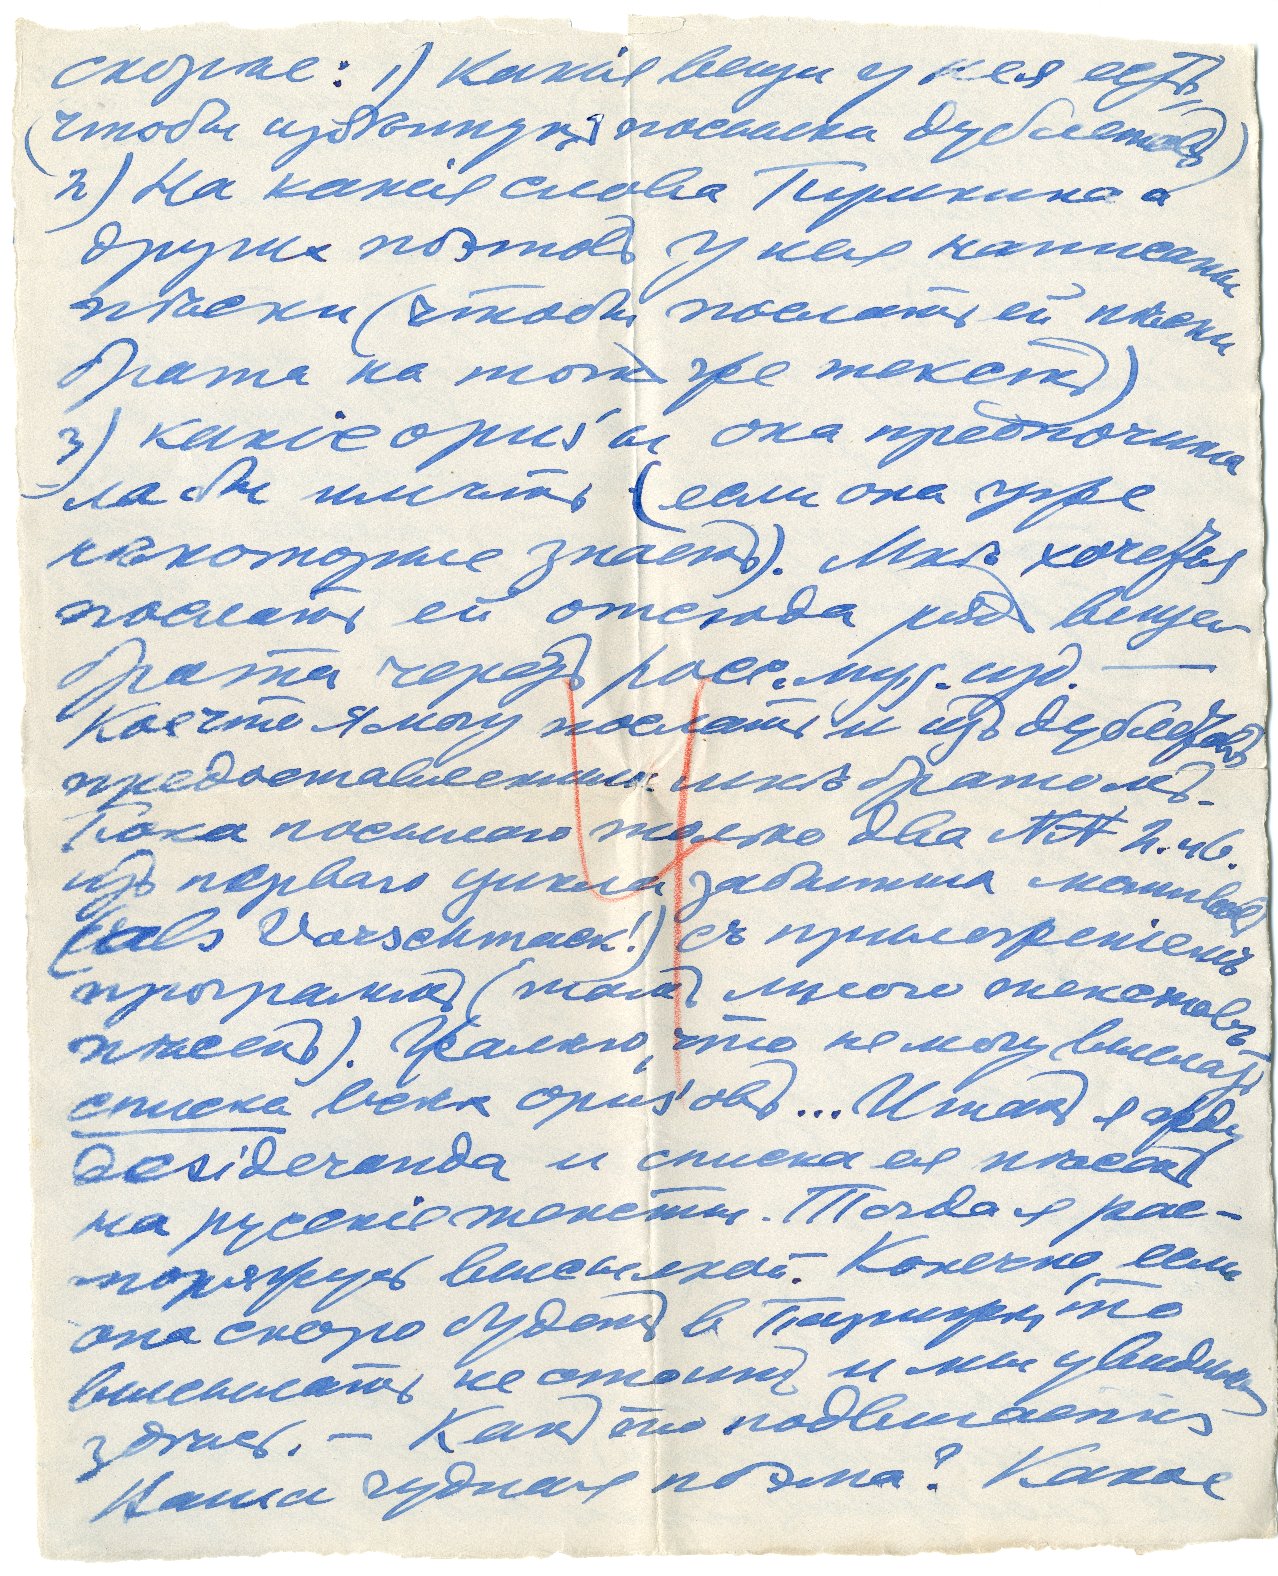 скорѣе: 1) Какія вещи у нея есть,
(чтобы избѣгнуть посылки дублетовъ)
2) На какія слова Пушкина и
другихъ поэтовъ у нея написаны
пѣсни (чтобы послать ей пѣсни
брата на тотъ же текстъ)
3) Какіе opus'ы она предпочита
ла бы имѣть (если она уже
некоторые знаетъ). Мнѣ хочется
послать ей отсюда рядъ вещей
брата черезъ росс. муз. изд. —
Кое что я могу послать и изъ дублетовъ
предоставленныхъ мнѣ братомъ.
Пока посылаю только два №№
изъ перваго цикла забытыхъ мотивовъ
(als Vorschmack!) съ приложеніемъ
программъ (тамъ много текстовъ
пѣсенъ). Жалко, что не могу выслать
списка всѣхъ opus'овъ... Итакъ я жду
Desideranda и списка ея пѣсенъ
на русскіе тексты. Тогда я рас-
поряжусь высылкой. Конечно, если
она скоро будетъ в Парижѣ, то
высылать не стоитъ и мы увидимся
здѣсь. — Какъ то подвигается
Наша чудная поэма? Какое